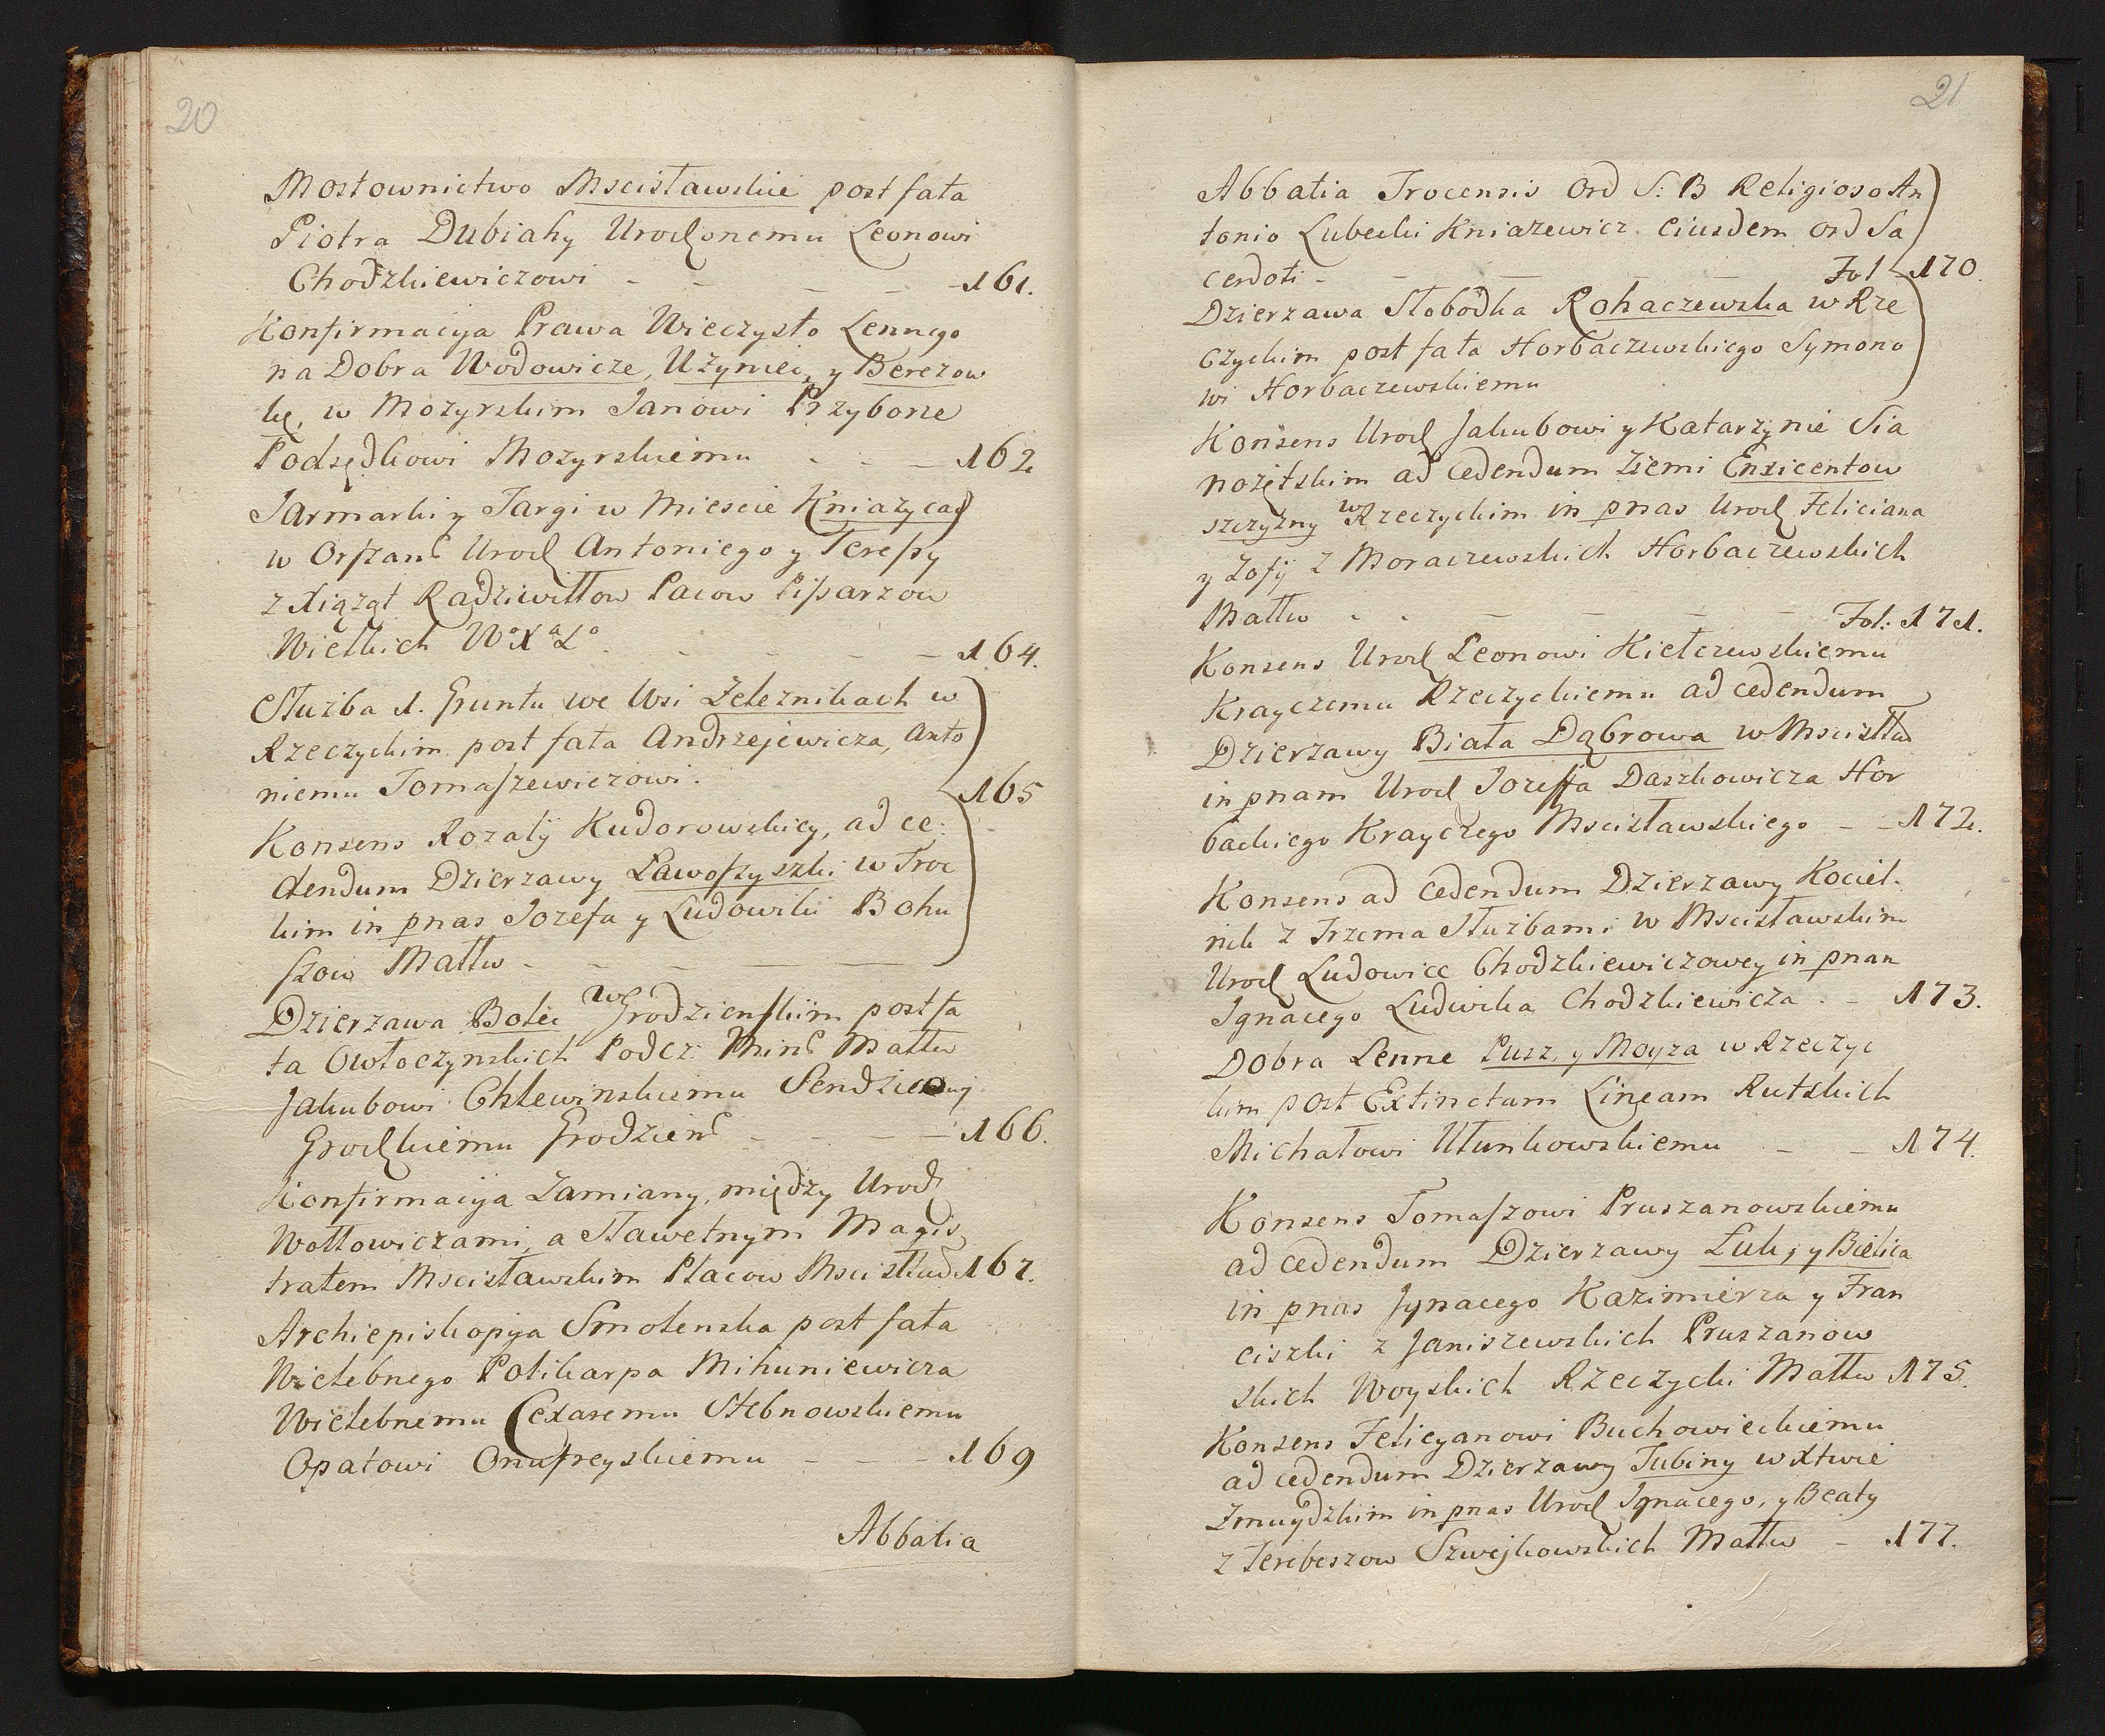 20
Mostownictwo Mscisławskie post fata
Piotra Dubiahy Urodzonemu Leonowi
Chodzkiewiczowi - - - - - 161.
Konfirmacyja Prawa Wieczysto Lennego
na Dobra Wodowicze, Użyniec, y Berezow
kę, w Mozyrskim Janowi Przyborze
Podsędkowi Mozyrskiemu - - - 162
Jarmarki y Targi w Miescie Kniażycach
w Orszans Urod Antoniego y Teressy
z Xiążąt Radziwiłłow Pacow Pisarzow
Wielkich Wo Xa Lo. - - - - 164.
Służba 1. Gruntu we Wsi Zeleznikach w
Rzeczyckim post fata Andrzejewicza, Anto
niemu Tomaszewiczowi.
165
Konsens Rozalij Kudorowskiey, ad ce:
dendum Dzierzawy Ławoszyszki w Troc
kim in pnas Jozefa y Ludowiki Bohu
szow Małłw - - - - -
Dzierzawa Bolei w Grodzienskim post fa
ta Owłoczynskich Podcz: Mins Małłw
Jakubowi Chlewinskiemu Sendziemuj
Grodzkiemu Grodziens - - - - 166.
Konfirmacyja Zamiany, między Urodz
Wołłowiczami, a Sławetnym Magis
tratem Mscisławskim Placow Mscisław 167.
Archiepiskopija Smolenska post fata
Wielebnego Polikarpa Mihuniewicza
Wielebnemu Cezaremu Stebnowskiemu
Opatowi Onufreyskiemu - - - 169
Abbatia
21
Abbatia Trocensis Ord S: B Religioso An
tonio Lubecki Kniazewicz Ciusdem Ord Sa
cerdoti - - - - - Fol 170.
Dzierzawa Słobodka Rohaczewska w Rze
czyckim post fata Horbaczewskiego Symono
wi Horbaczewskiemu
Konsens Urod Jakubowi y Katarzynie Sia
nożętskim ad cedendum Ziemi Enxicentow
szczyzny w Rzeczyckim in pnas Urod Feliciana
y Zofij z Moraczewskich Horbaczewskich
Małłw - - - - - Fol: 171.
Konsens Urod Leonowi Kiełczewskiemu
Krayczemu Rzeczyckiemu ad cedendum
Dzierzawy Biała Dąbrowa w Mscisłłw
in pnam Urod Jozeffa Daszkowicza Hor
backiego Krayczego Mscisławskiego - - 172.
Konsens ad cedendum Dzierzawy Kociel-
nik z Trzema Służbami w Mscisławskim
Urod Ludowice Chodzkiewiczowey in pnam
Ignacego Ludwika Chodzkiewicza - - 173.
Dobra Lenne Pusz, y Moyza w Rzeczyc
kim post Extinctam Lineam Rutskich
Michałowi Ułunkowskiemu - - 174.
Konsens Tomaszowi Pruszanowskiemu
ad cedendum Dzierzawy Łuki, y Bielica
in pnas Jgnacego Kazimierza y Fran
ciszki z Janiszewskich Pruszanow
skich Woyskich Rzeczycki Małłw 175.
Konsens Felicyanowi Buchowieckiemu
ad cedendum Dzierzawy Tubiny w Xtwie
Zmuydzkim in pnas Urod Ignacego, y Beaty
z Jerebeszow Szwejkowskich Małłw - 177.